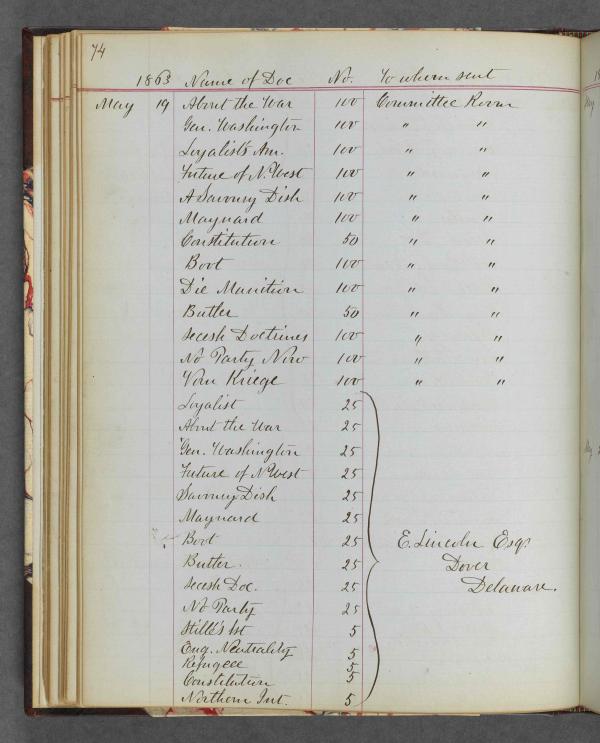 74
1863 Name of Doc No. To whom sent
May 19 About the War 100 Committee Room
Gen. Washington 100 " "
Loyalists Am. 100 " "
Future of N. West 100 " "
A Savoury Dish 100 " "
Maynard 100 " "
Constitution 50 " "
Boot 100 " "
Die Manition 100 " "
Butler 50 " "
Secesh Doctrines 100 " "
No Party Now 100 " "
Vom Kriege 100 " "
Loyalist 25
About the War 25
Gen. Washington 25
Future of N West 25
Savoury Dish 25
Maynard 25
Boot 25 E. Lincoln Esq.
Butler. 25 Dover
Secesh Doc. 25 Delaware.
No Party 25
Stillé's 1st 5
Eng. Neutrality 5
Refugee 5
Constitution 5
Northern Int. 5